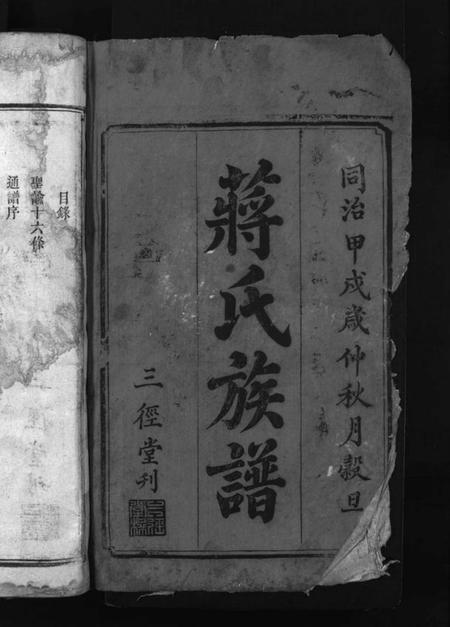 同治甲戍歲仲秋月穀旦
蔣氏族譜
三徑堂刊
目錄
聖諭十六條
通譜序